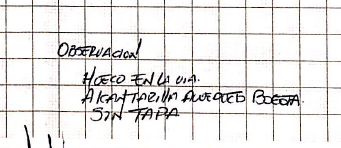 OBSERVACION
HUECO EN LA VIA.
ALCANTARILLA BOGOTA.
SIN TAPA